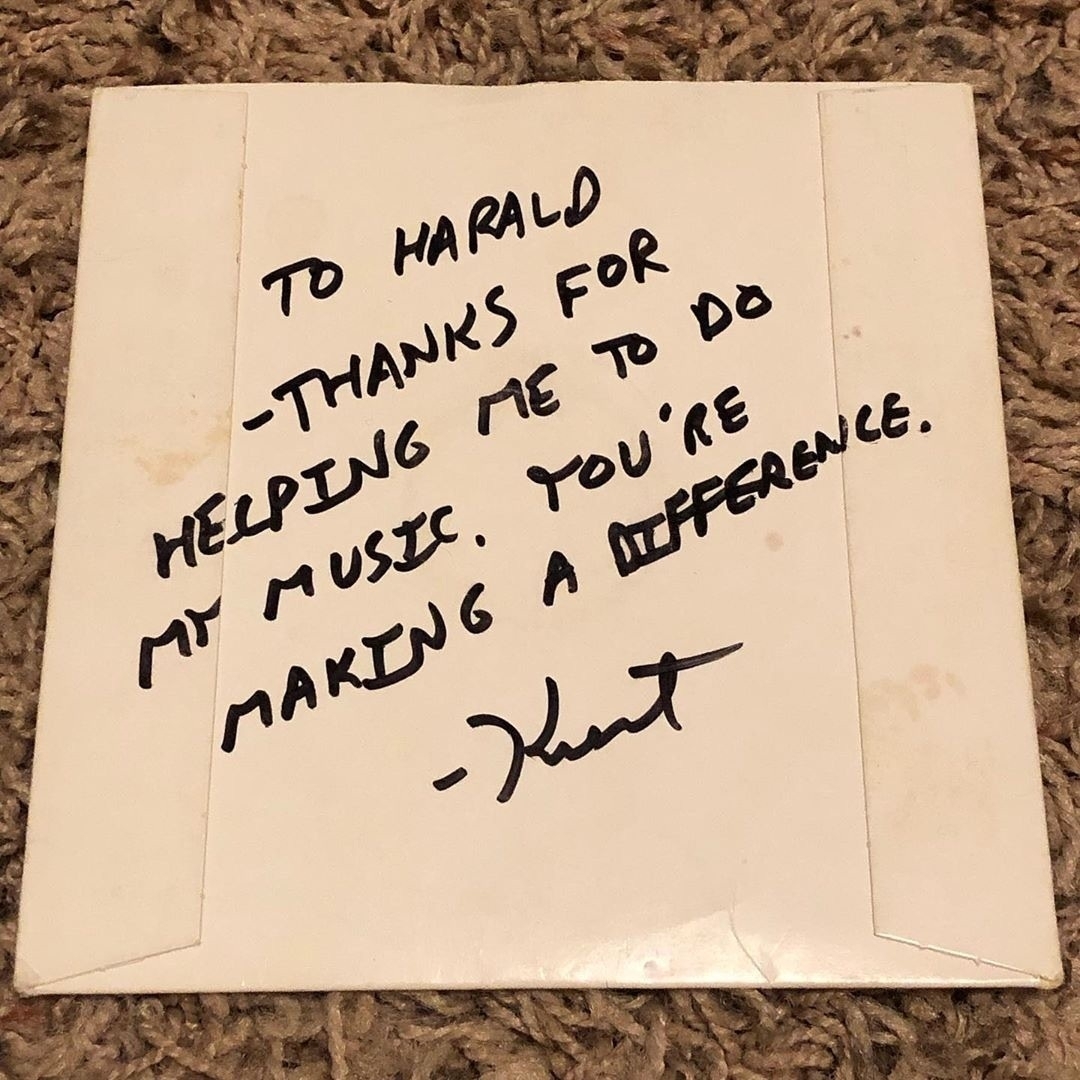 TO HARALD
-THANKS FOR
HELPING ME TO DO
MY MUSIC. YOU'RE
MAKING A DIFFERENCE.
-Kurt